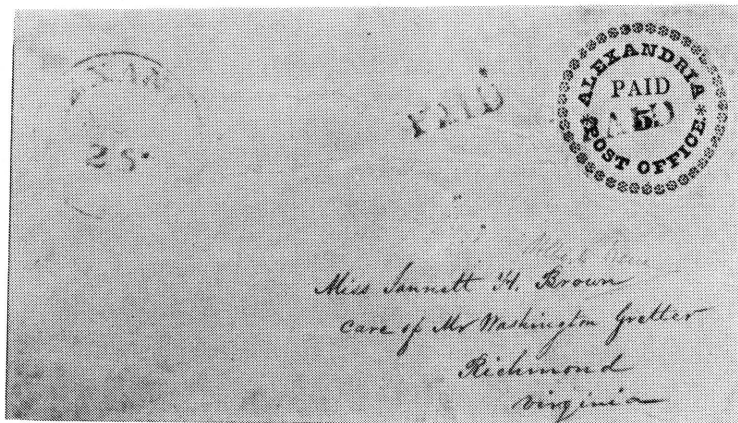 PAID
ALEXANDRIA
PAID
5
POST OFFICE
25
Miss Jannett H. Brown
Care of Mr Washington Gretter
Richmond
Virginia